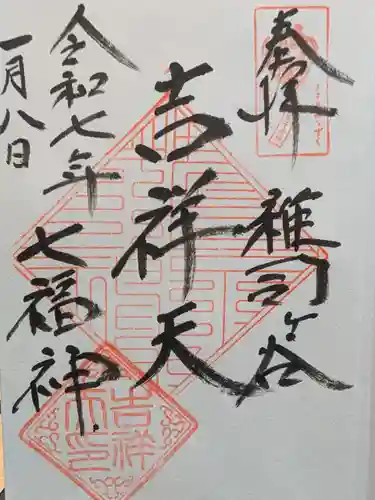 奉拝
雑司ヶ谷
吉祥天
令和七年
一月八日
七福神
吉祥
天印